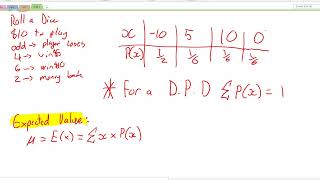 Roll a Dice
$10 to play
odd → player loses
4 → win $5
6 → win $10
2 → money back
x | -10 | 5 | 10 | 0
P(x) | 1/2 | 1/6 | 1/6 | 1/6
* For a D.P.D ΣP(x) = 1
Expected Value:
μ = E(x) = Σx × P(x)